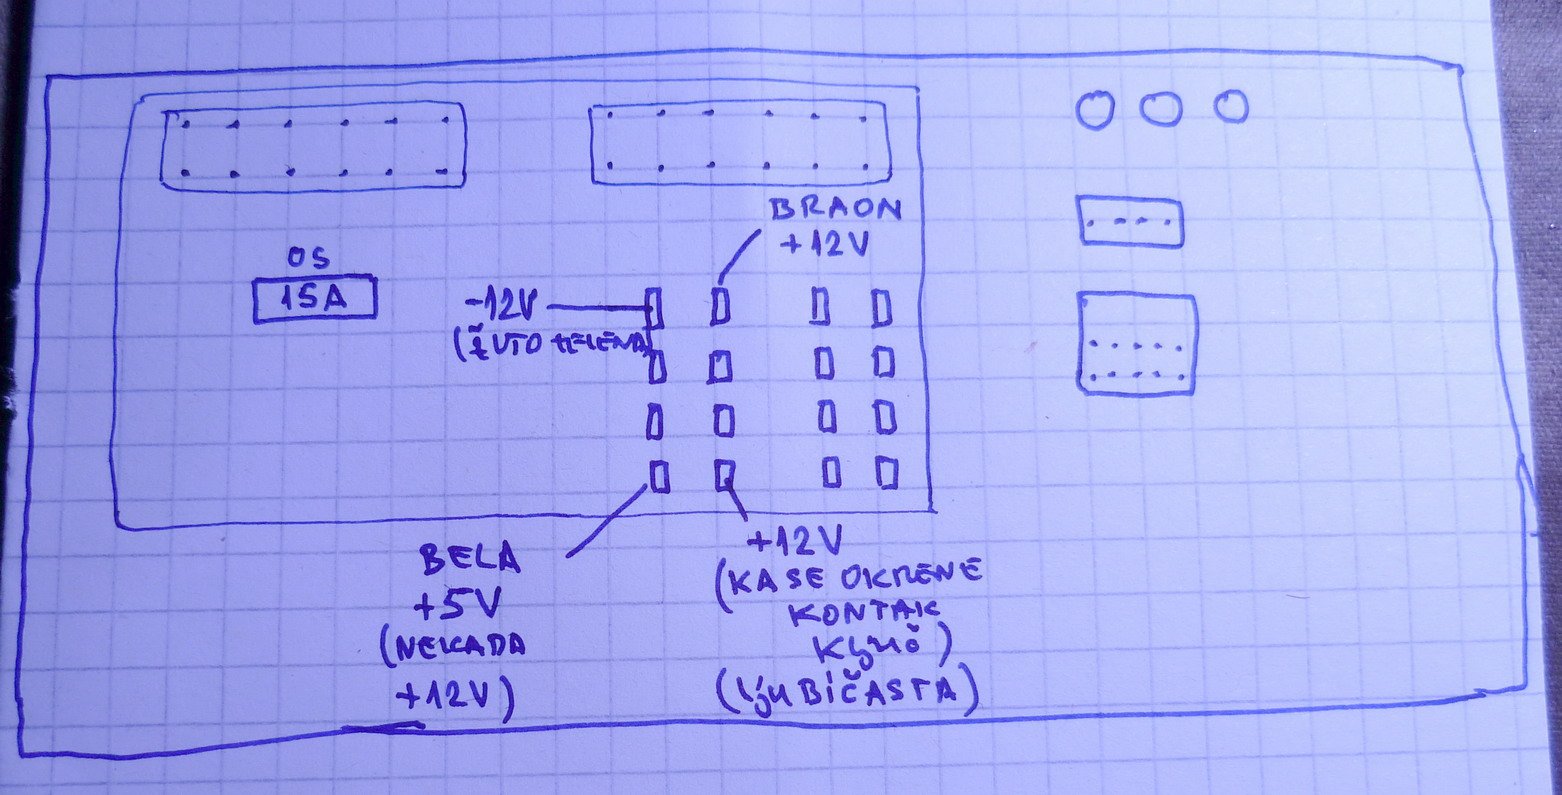 BRAON
+12V
OS
15A
-12V
(ŽUTO ZELENA)
BELA
+5V
(NEKADA
+12V)
+12V
(KA SE OKRENE
KONTAK
KLJUČ)
(LJUBIČASTA)